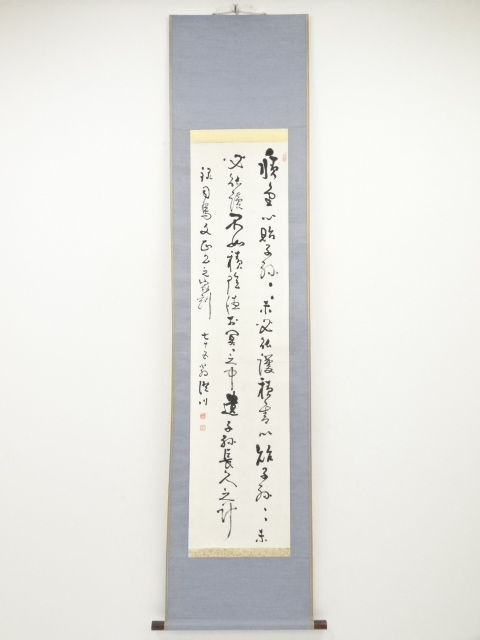 積金以貽子孫〻〻未必能護積書以貽子孫〻〻未
必能讀不如積陰徳於冥〻之中遺子孫長久之計
録司馬文正公之家訓 七十五翁